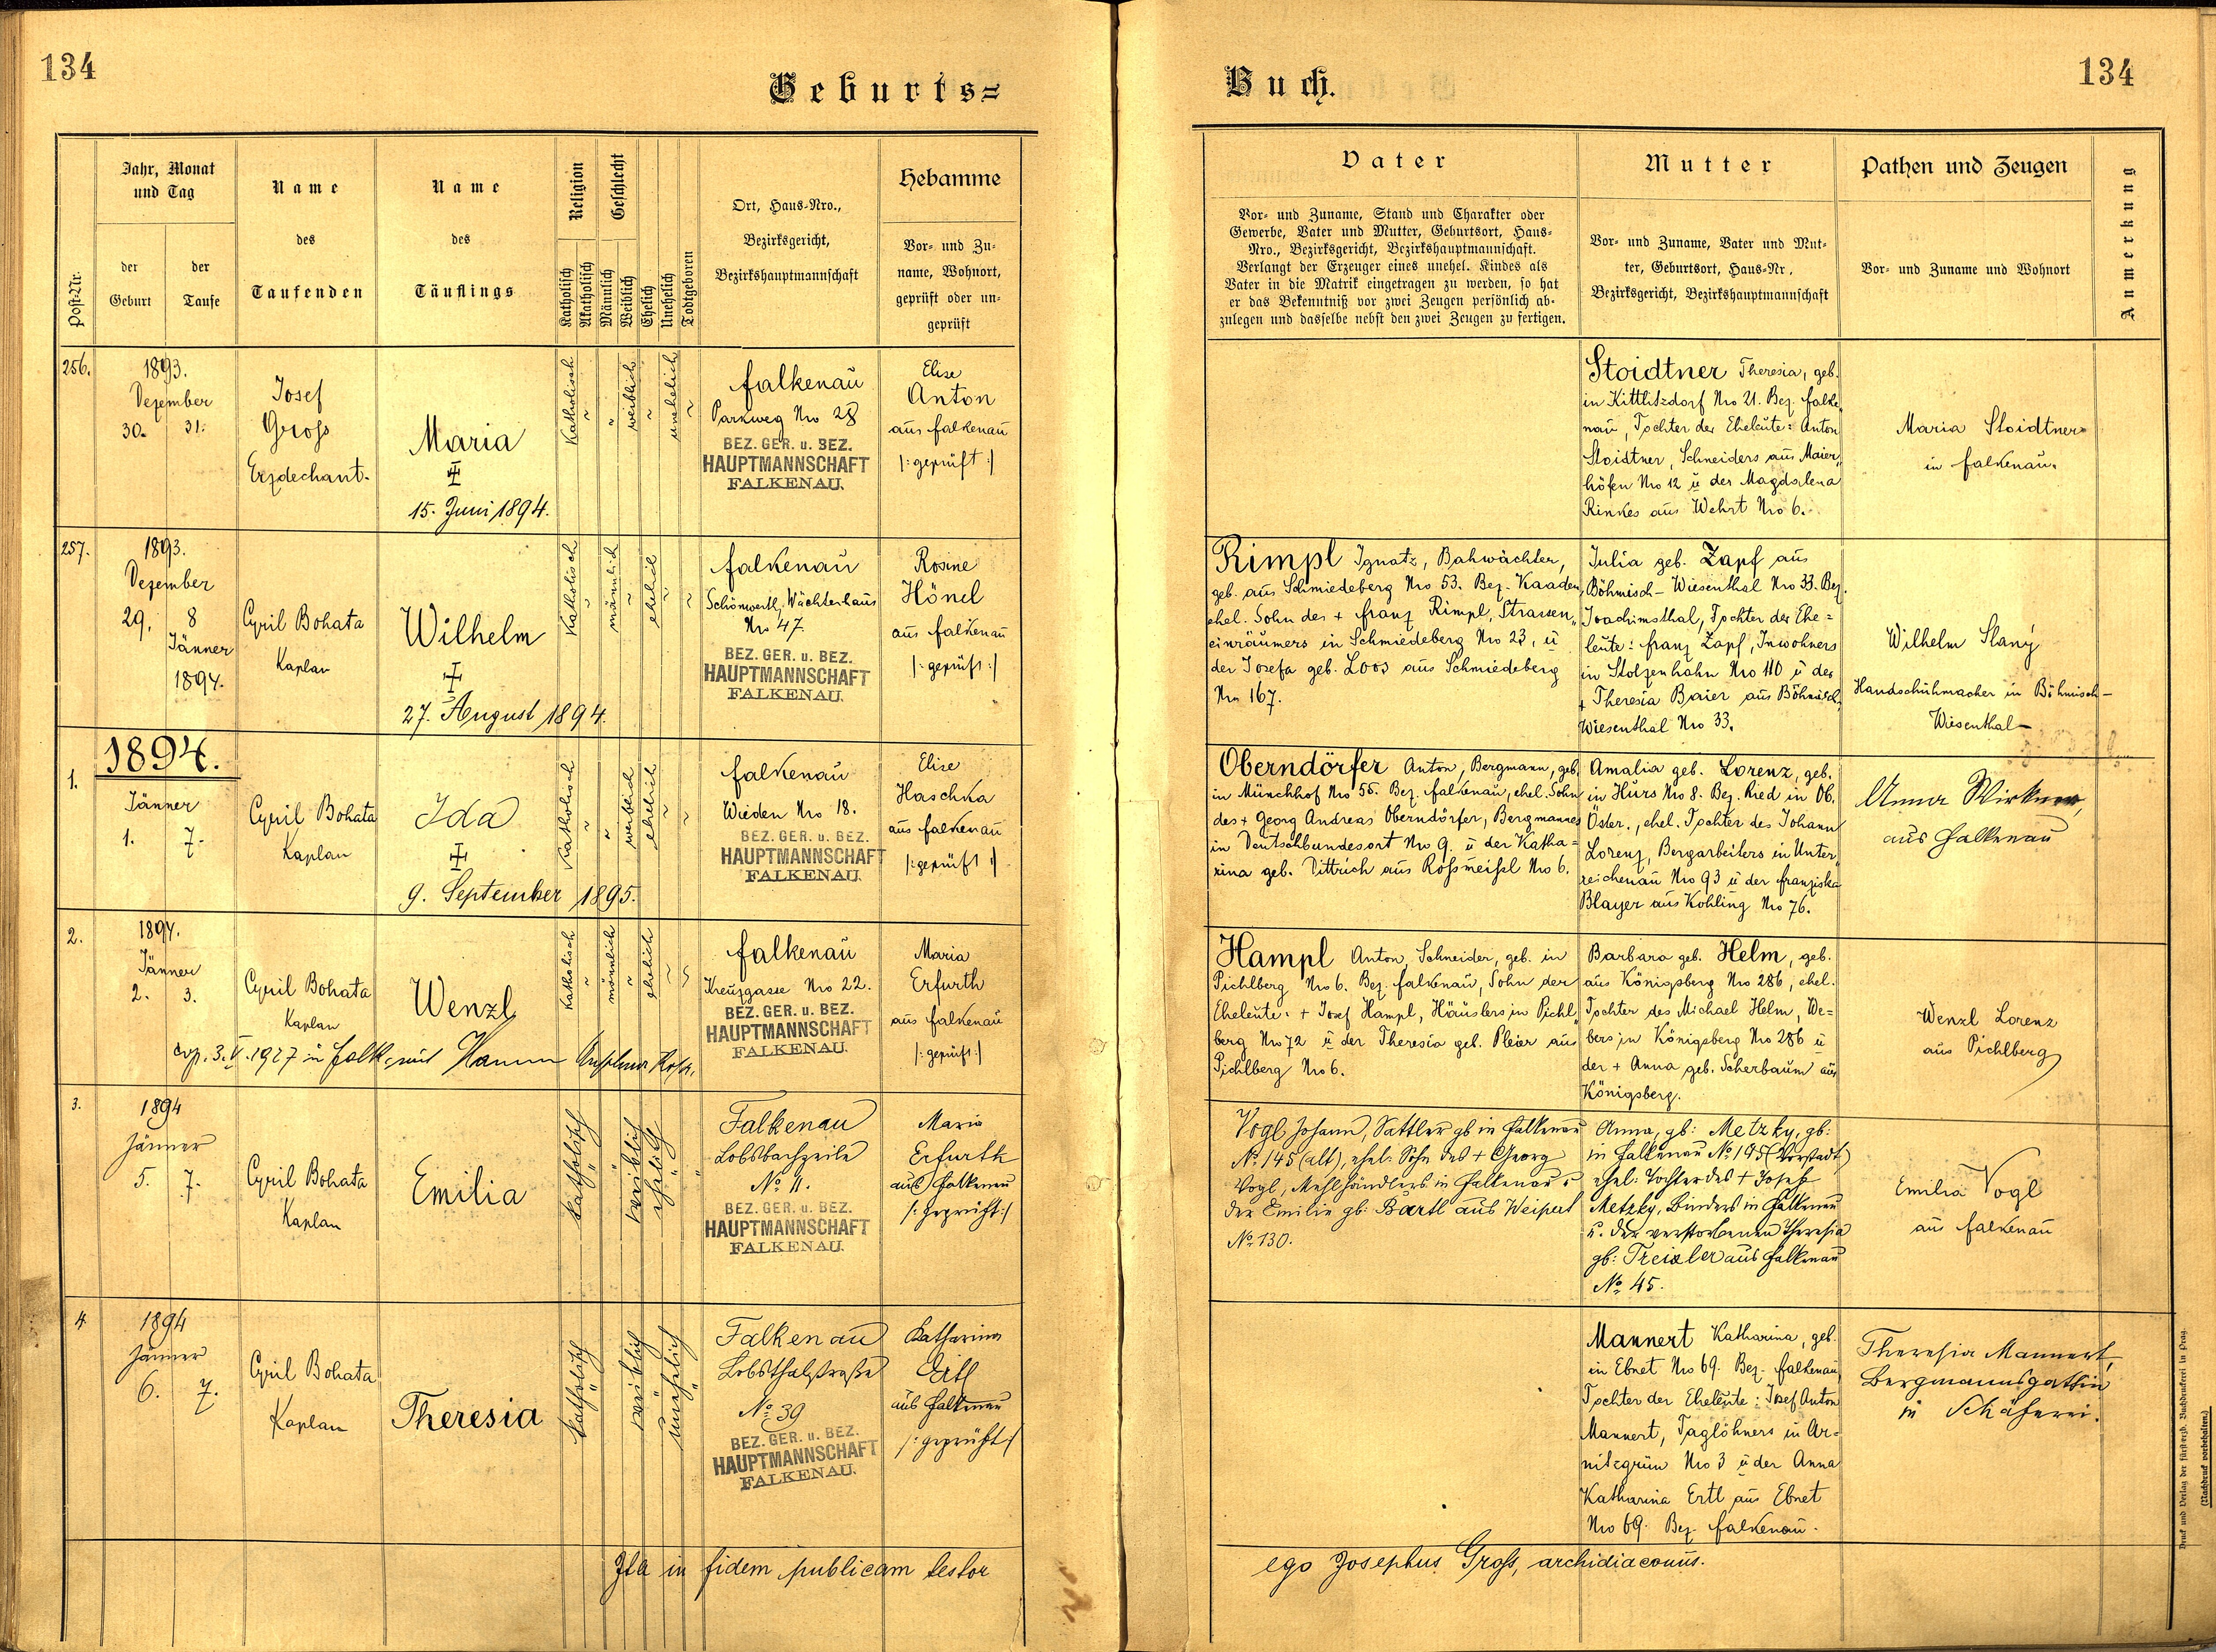 134
Geburts=
Post-Nr.
Jahr, Monat
und Tag
der
Geburt
der
Taufe
Name
des
Taufenden
Name
des
Täuflings
Religion
Katholisch
Akatholisch
Geschlecht
Männlich
Weiblich
Ehelich
Unehelich
Todtgeboren
Ort, Haus-Nro.,
Bezirksgericht,
Bezirkshauptmannschaft
Hebamme
Vor- und Zu-
name, Wohnort,
geprüft oder un-
geprüft
256.
1893.
Dezember
30. 31.
Josef
Gross
Erzdechant.
Maria
15. Juni 1894.
Katholisch
weiblich
unehelich
Falkenau
Parkweg Nro 28
BEZ. GER. u. BEZ.
HAUPTMANNSCHAFT
FALKENAU.
Elise
Anton
aus Falkenau
/: geprüft :/
257.
1893.
Dezember
29. 8
Jänner
1894.
Cyril Bohata
Kaplan
Wilhelm
27. August 1894.
Katholisch
männlich
ehelich
Falkenau
Schönwerth, Wächterhaus
Nro 47.
BEZ. GER. u. BEZ.
HAUPTMANNSCHAFT
FALKENAU.
Rosine
Hönel
aus Falkenau
/: geprüft :/
1.
1894.
Jänner
1. 7.
Cyril Bohata
Kaplan
Ida
9. September 1895.
Katholisch
weiblich
ehelich
Falkenau
Wieden Nro 18.
BEZ. GER. u. BEZ.
HAUPTMANNSCHAFT
FALKENAU.
Elise
Haschka
aus Falkenau
/: geprüft :/
2.
1894.
Jänner
2. 3.
Cyril Bohata
Kaplan
Wenzl
cop. 3. V. 1927 in Falk. mit
Katholisch
männlich
ehelich
Falkenau
Kreuzgasse Nro 22.
BEZ. GER. u. BEZ.
HAUPTMANNSCHAFT
FALKENAU.
Maria
Erfurth
aus Falkenau
/: geprüft :/
3.
1894
Jänner
5. 7.
Cyril Bohata
Kaplan
Emilia
katholisch
weiblich
ehelich
Falkenau
Lobsbachzeile
No. 11.
BEZ. GER. u. BEZ.
HAUPTMANNSCHAFT
FALKENAU.
Maria
Erfurth
aus Falkenau
/: geprüft :/
4
1894
Jänner
6. 7.
Cyril Bohata
Kaplan
Theresia
katholisch
weiblich
unehelich
Falkenau
Lobsthalstraße
No. 39
BEZ. GER. u. BEZ.
HAUPTMANNSCHAFT
FALKENAU.
Katharina
Ertl
aus Falkenau
/: geprüft :/
Ita in fidem publicam testor
Buch.
134
Vater
Vor- und Zuname, Stand und Charakter oder
Gewerbe, Vater und Mutter, Geburtsort, Haus-
Nro., Bezirksgericht, Bezirkshauptmannschaft.
Verlangt der Erzeuger eines unehel. Kindes als
Vater in die Matrik eingetragen zu werden, so hat
er das Bekenntniß vor zwei Zeugen persönlich ab-
zulegen und dasselbe nebst den zwei Zeugen zu fertigen.
Mutter
Vor- und Zuname, Vater und Mut-
ter, Geburtsort, Haus-Nr.,
Bezirksgericht, Bezirkshauptmannschaft
Pathen und Zeugen
Vor- und Zuname und Wohnort
Anmerkung
Stoidtner Theresia, geb.
in Kittlitzdorf Nro 21. Bez. Falke„
nau, Tochter der Eheleute: Anton
Stoidtner, Schneiders aus Maier„
höfen Nro 12 u der Magdalena
Rinkes aus Wehrt Nro 6.
Maria Stoidtner
in Falkenau.
Rimpl Ignatz, Bahwächter,
geb. aus Schmiedeberg Nro 53. Bez. Kaaden,
ehel. Sohn des + Franz Rimpl, Strassen„
einräumers in Schmiedeberg Nro 23, u
der Josefa geb. Loos aus Schmiedeberg
Nro 167.
Julia geb. Zapf aus
Böhmisch-Wiesenthal Nro 33. Bez.
Joachimsthal, Tochter der Ehe=
leute: Franz Zapf, Inwohners
in Stolzenhahn Nro 110 u der
+ Theresia Baier aus Böhmisch„
Wiesenthal Nro 33.
Wilhelm Slaný
Handschuhmacher in Böhmisch-
Wiesenthal
Oberndörfer Anton, Bergmann, geb.
in Münchhof Nro 55. Bez. Falkenau, ehel. Sohn
des + Georg Andreas Oberndörfer, Bergmannes
in Deutschbundesort Nro 9. u der Katha=
rina geb. Dittrich aus Rossmeisl Nro 6.
Amalia geb. Lorenz, geb.
in Hurs Nro 8. Bez. Ried in Ob.
Öster., ehel. Tochter des Johann
Lorenz, Bergarbeiters in Unter„
reichenau Nro 93 u der Franziska
Blayer aus Kohling Nro 76.
Anna
aus Falkenau
Hampl Anton, Schneider, geb. in
Pichlberg Nro 6. Bez. Falkenau, Sohn der
Eheleute: + Josef Hampl, Häuslers in Pichl„
berg Nro 72 u der Theresia geb. Pleier aus
Pichlberg Nro 6.
Barbara geb. Helm, geb.
aus Königsberg Nro 286, ehel.
Tochter des Michael Helm, We=
bers in Königsberg Nro 286 u
der + Anna geb. Scherbaum aus
Königsberg.
Wenzl Lorenz
aus Pichlberg
Vogl Johann, Sattler gb in Falkenau
No. 145 (alt), ehel: Sohn des + Georg
Vogl, Mehlhändlers in Falkenau u
der Emilie gb: Bartl aus Weipert
No. 130.
Anna, gb: Metzky, gb:
in Falkenau No. 195 (Vorstadt)
ehel: Tochter des + Josef
Metzky, Binders in Falkenau
u. der verstorbenen Theresia
gb: Treixler aus Falkenau
No. 45.
Emilia Vogl
aus Falkenau
Mannert Katharina, geb.
in Ebnet Nro 69. Bez. Falkenau,
Tochter der Eheleute: Josef Anton
Mannert, Taglöhners in Ar=
nitzgrün Nro 3 u der Anna
Katharina Ertl aus Ebnet
Nro 69. Bez. Falkenau.
Theresia Mannert,
Bergmannsgattin
in Schäferei.
ego Josephus Gross, archidiaconus.
Druck und Verlag der fürsterzb. Buchdruckerei in Prag.
(Nachdruck vorbehalten.)